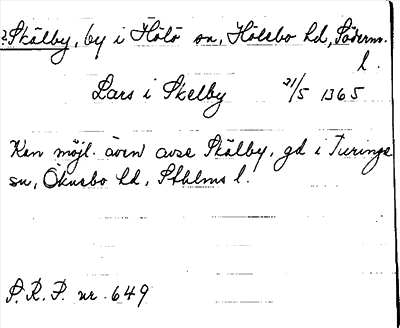 ?Skälby, by i Hölö sn, Hölebo hd, Söderm.
l.
Lars i Skelby 21/5 1365
Kan möjl. även avse Skälby, gd i Turinge
sn, Öknebo hd, Sthlms l.
S. R. P. nr 649